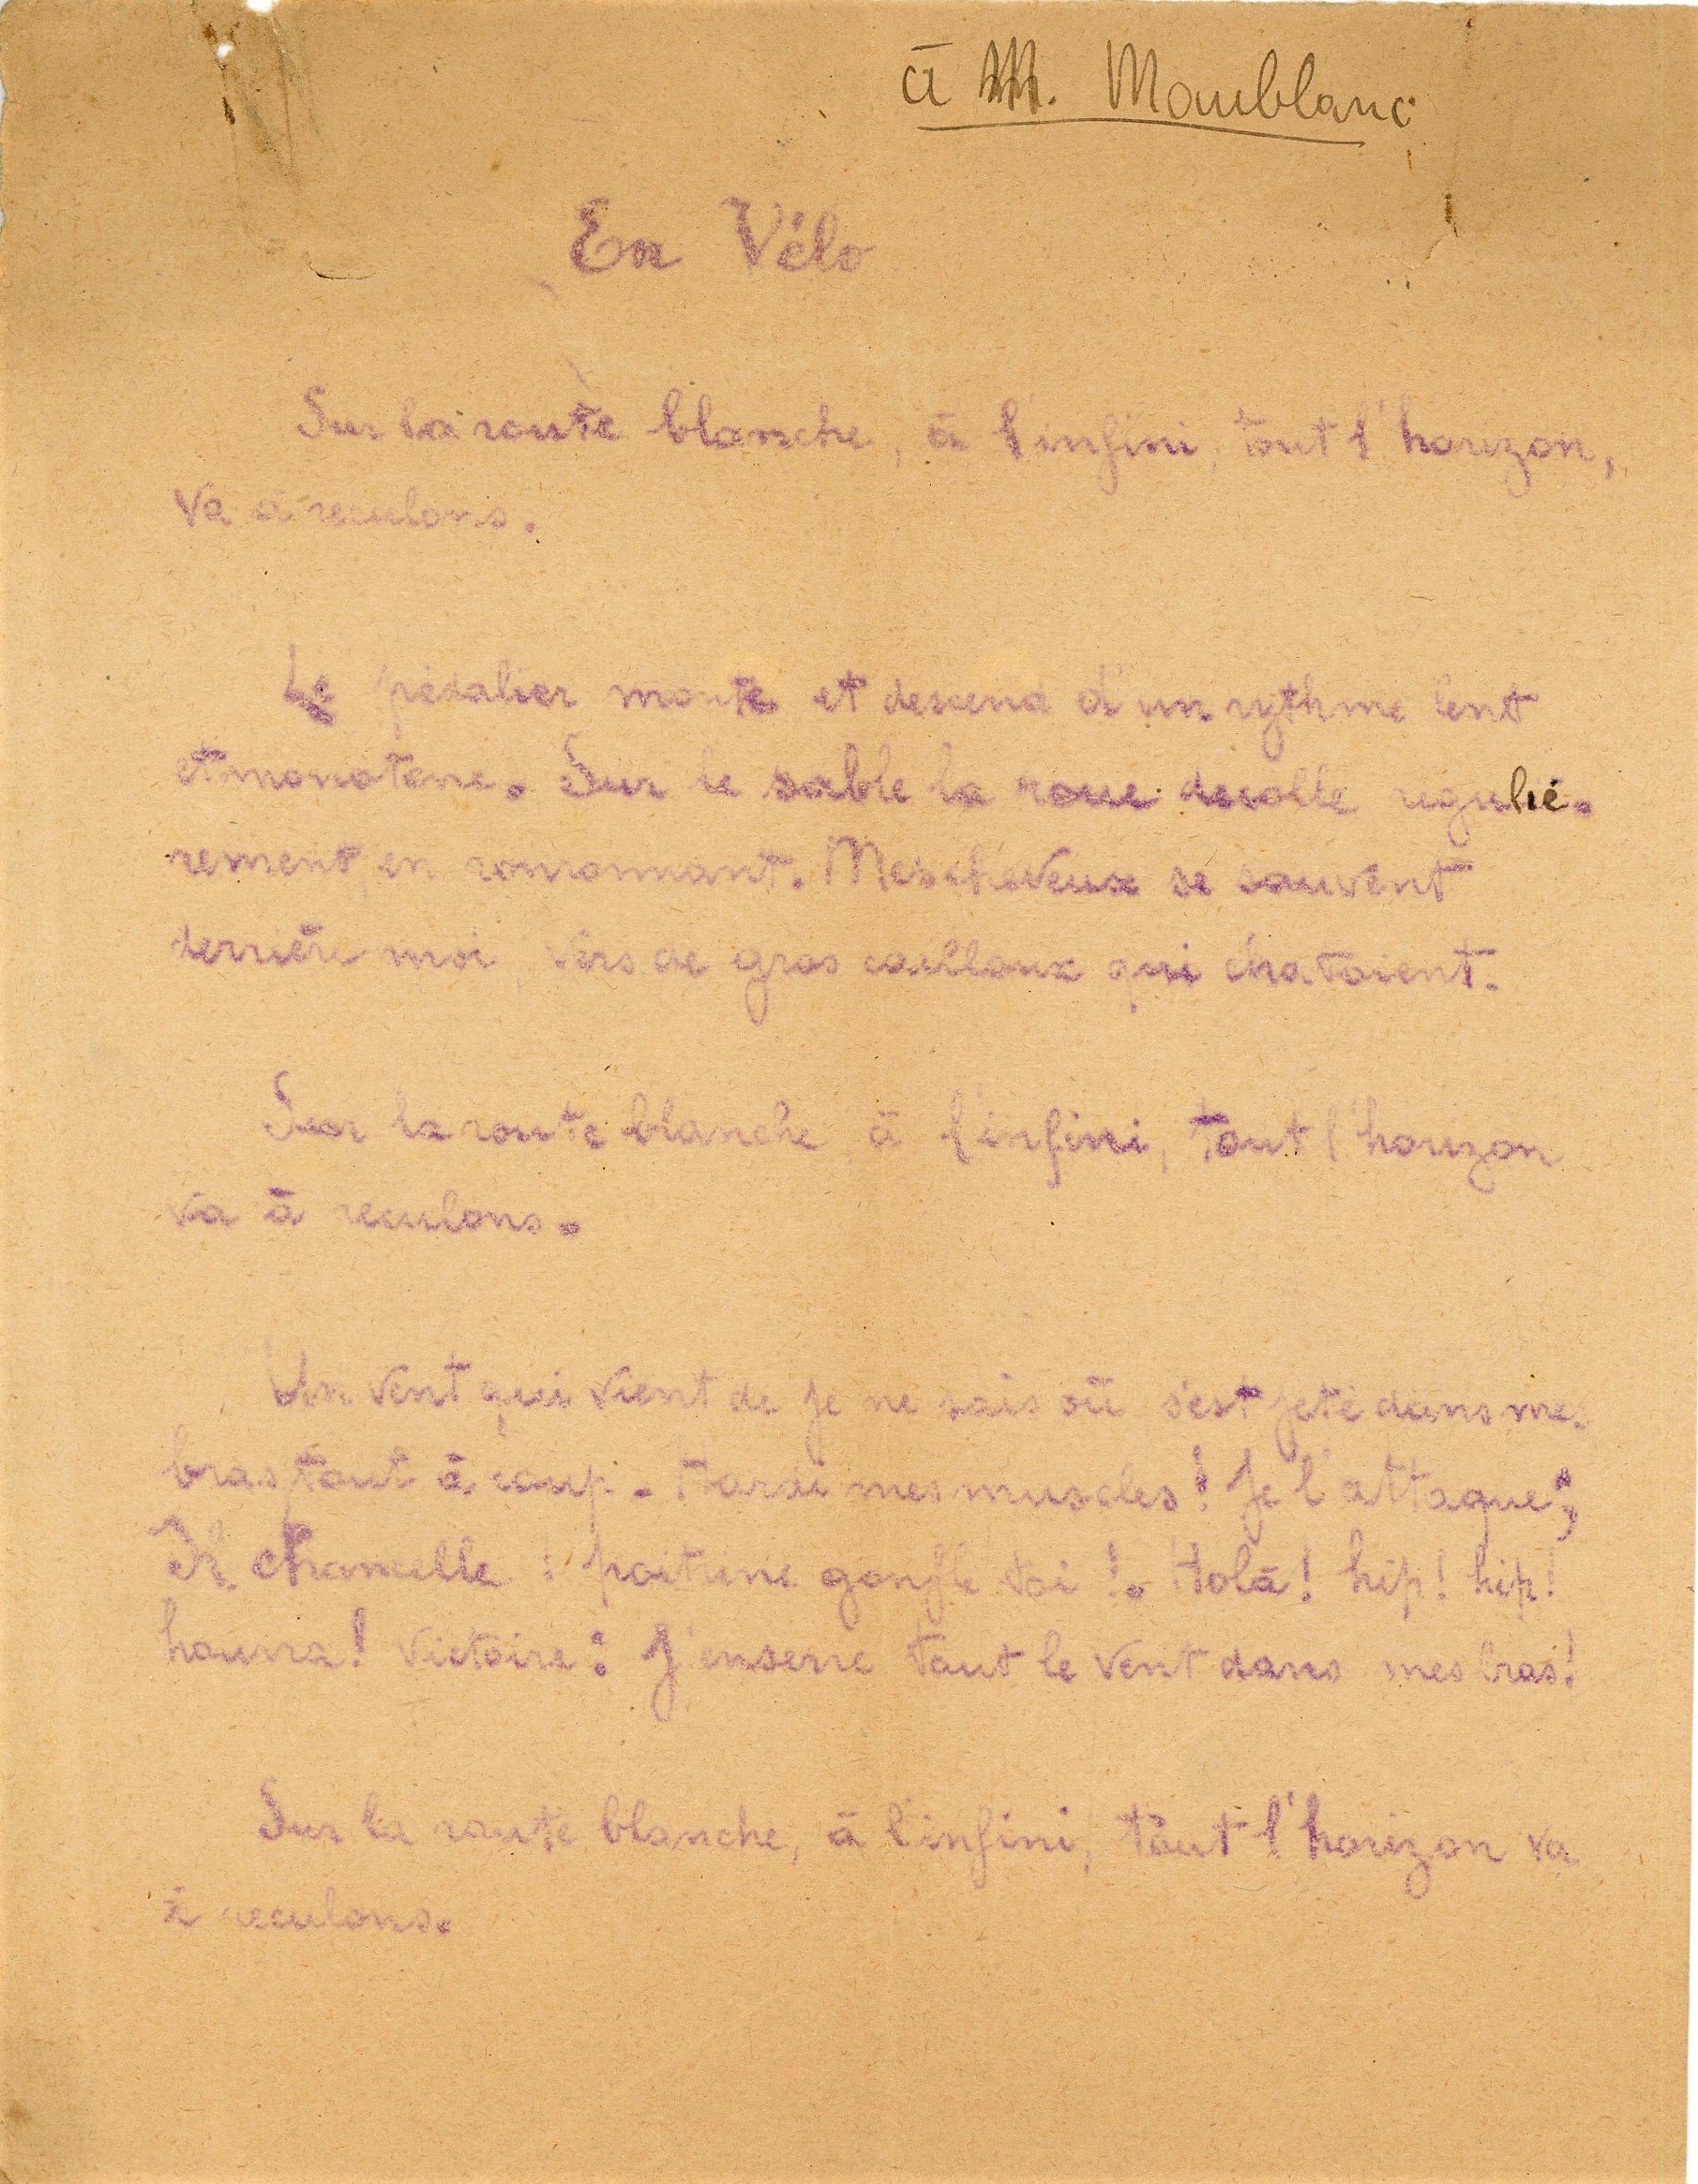 à M. Maublanc
En Vélo
Sur la route blanche, à l'infini, tout l'horizon,
va à reculons.
Le pédalier monte et descend d'un rythme lent
et monotone. Sur le sable la roue décolle reguliè-
rement, en ronronnant. Mes cheveux se sauvent
derrière moi, vers de gros cailloux qui chatoient.
Sur la route blanche à l'infini, tout l'horizon
va à reculons.
Un vent qui vient de je ne sais où s'est jeté dans mes
bras tout à coup. Hardi mes muscles! Je l'attaque;
Il chancelle! poitrine gonfle toi!. Holà! hip! hip!
hourra! Victoire: J'enserre tout le vent dans mes bras!
Sur la route blanche, à l'infini, tout l'horizon va
à reculons.